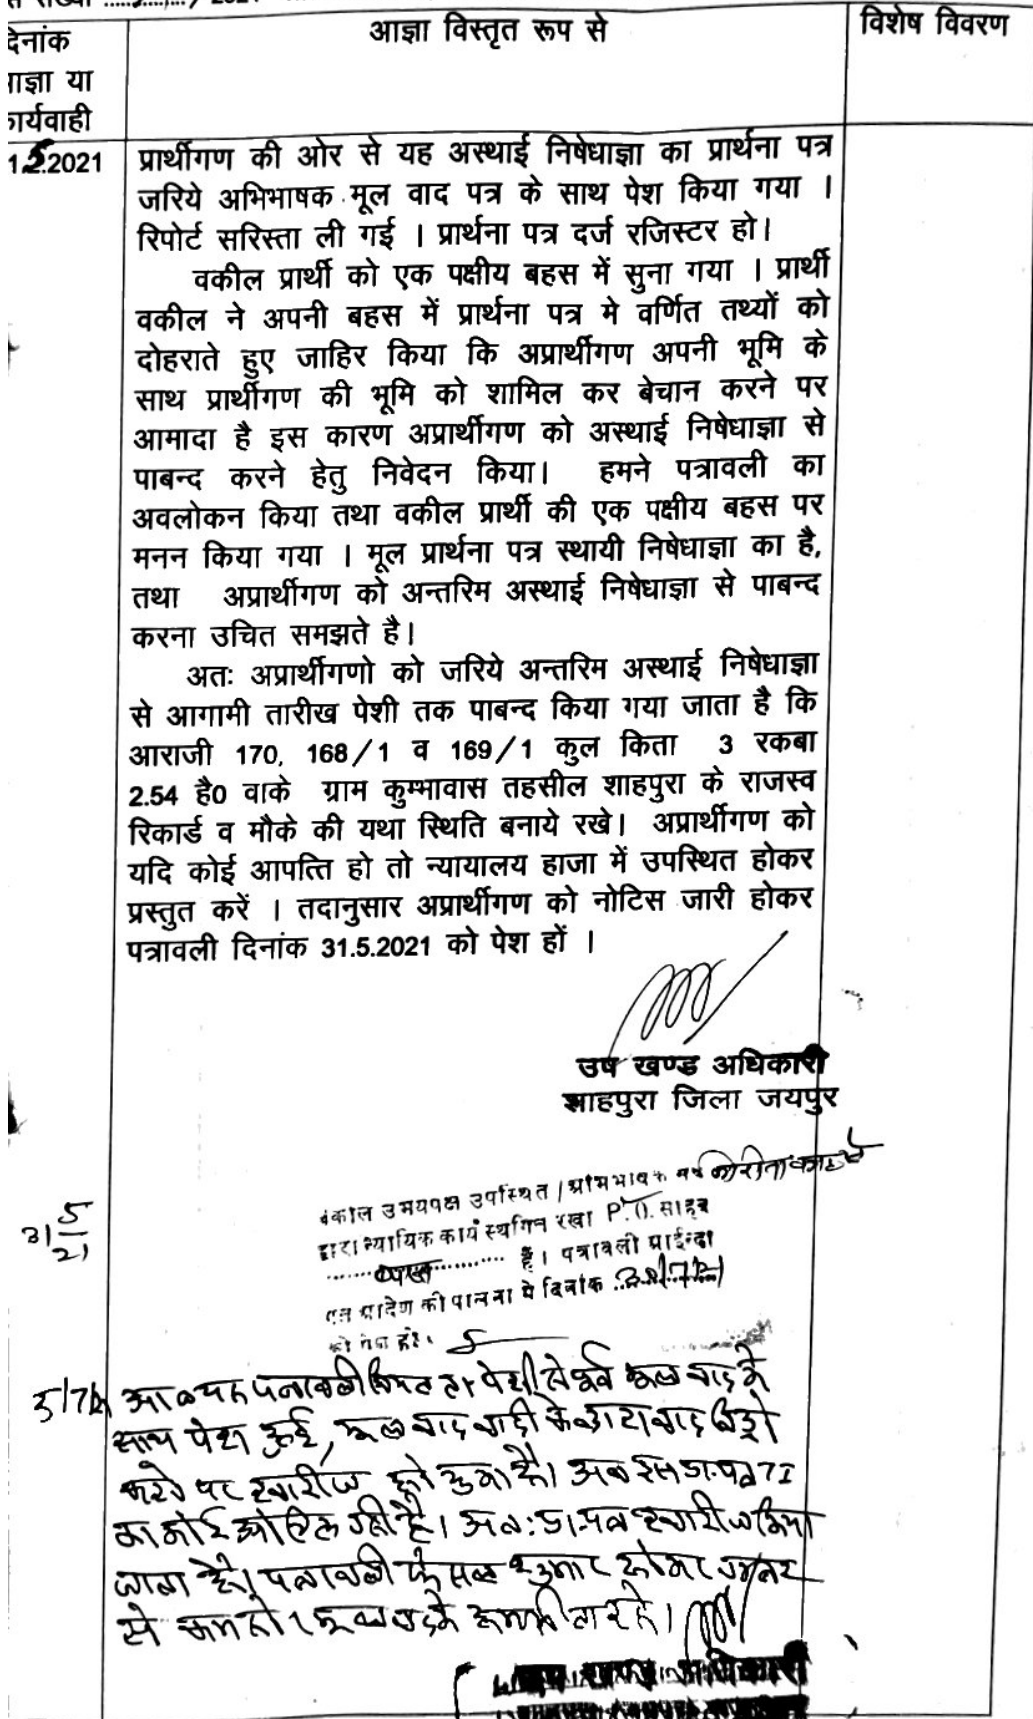 दिनांक
आज्ञा या
कार्यवाही
आज्ञा विस्तृत रूप से
विशेष विवरण
1.5.2021
प्रार्थीगण की ओर से यह अस्थाई निषेधाज्ञा का प्रार्थना पत्र
जरिये अभिभाषक मूल वाद पत्र के साथ पेश किया गया ।
रिपोर्ट सरिस्ता ली गई । प्रार्थना पत्र दर्ज रजिस्टर हो।
वकील प्रार्थी को एक पक्षीय बहस में सुना गया । प्रार्थी
वकील ने अपनी बहस में प्रार्थना पत्र मे वर्णित तथ्यों को
दोहराते हुए जाहिर किया कि अप्रार्थीगण अपनी भूमि के
साथ प्रार्थीगण की भूमि को शामिल कर बेचान करने पर
आमादा है इस कारण अप्रार्थीगण को अस्थाई निषेधाज्ञा से
पाबन्द करने हेतु निवेदन किया। हमने पत्रावली का
अवलोकन किया तथा वकील प्रार्थी की एक पक्षीय बहस पर
मनन किया गया । मूल प्रार्थना पत्र स्थायी निषेधाज्ञा का है,
तथा अप्रार्थीगण को अन्तरिम अस्थाई निषेधाज्ञा से पाबन्द
करना उचित समझते है।
अतः अप्रार्थीगणो को जरिये अन्तरिम अस्थाई निषेधाज्ञा
से आगामी तारीख पेशी तक पाबन्द किया गया जाता है कि
आराजी 170, 168/1 व 169/1 कुल किता 3 रकबा
2.54 है0 वाके ग्राम कुम्भावास तहसील शाहपुरा के राजस्व
रिकार्ड व मौके की यथा स्थिति बनाये रखे। अप्रार्थीगण को
यदि कोई आपत्ति हो तो न्यायालय हाजा में उपस्थित होकर
प्रस्तुत करें । तदानुसार अप्रार्थीगण को नोटिस जारी होकर
पत्रावली दिनांक 31.5.2021 को पेश हों ।
उप खण्ड अधिकारी
शाहपुरा जिला जयपुर
31/5/21
वकील उभयपक्ष उपस्थित / अभिभाषक
द्वारा न्यायिक कार्य स्थगित रखा P.O. साहब
व्यस्त है। पत्रावली
आदेश की पालना मे दिनांक
को पेश हो।
5/7/21 पत्रावली पेशी से पूर्व मूल वाद के
साथ पेश हुई, मूल वाद वादी के द्वारा वाद
करने पर खारीज हो चुका है। अब इस प्रा. पत्र
का कोई नही है। अतः प्रा. पत्र खारीज किया
जाता है। पत्रावली फैसल शुमार होकर नम्बर
से कम हो।